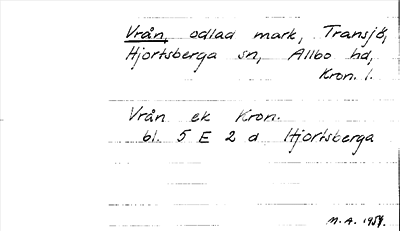 Vrån, odlad mark, Transjö,
Hjortsberga sn, Allbo hd,
Kron. l.
Vrån ek Kron.
bl. 5 E 2 d Hjortsberga
M.A. 1954.